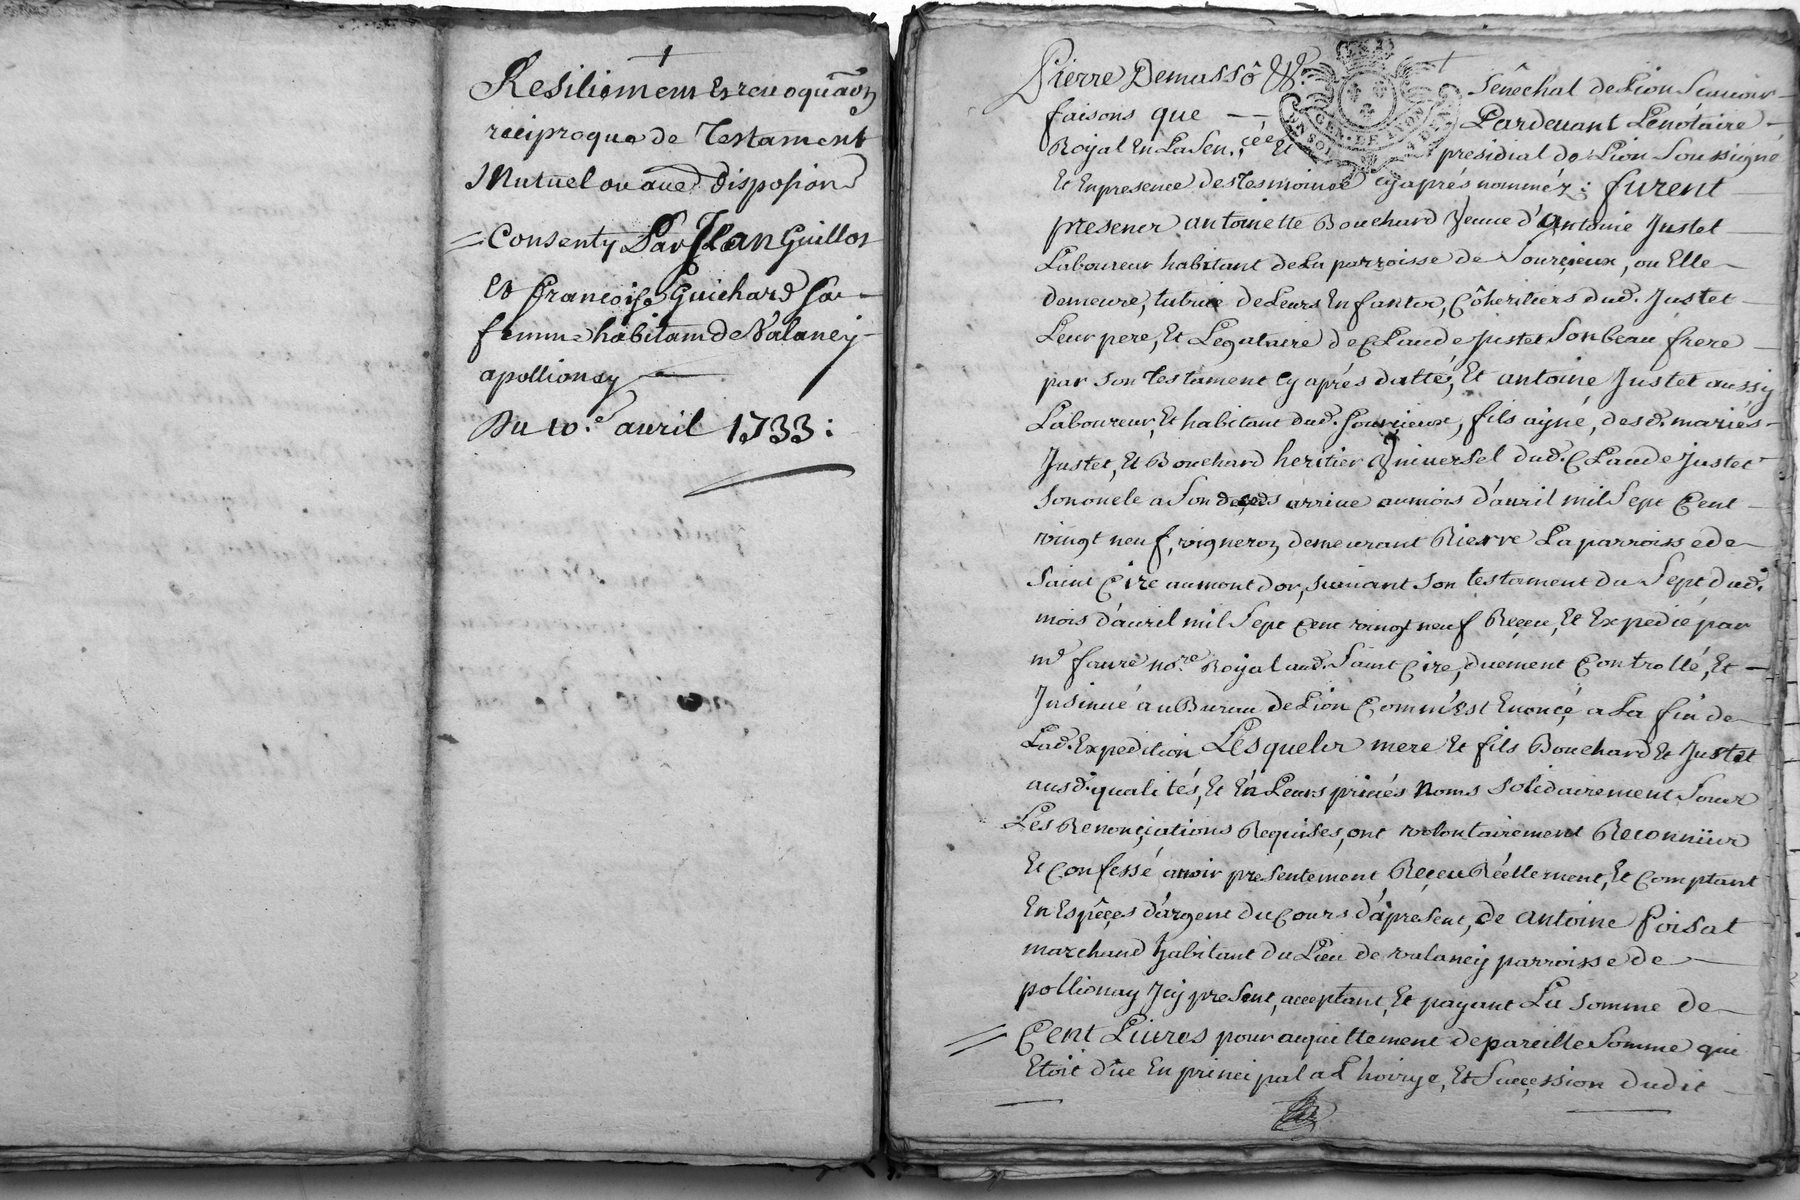 Resiliement Et revoquaôn
reciproque de Testament
Mutuel ou aued. disposion
Consenty Par Jean Guillot
Et francoise Guichard sa
femme habitans de Valaney
a pollionay
Du 10.e auril 1733:
Pierre Demassô &c. Senêchal de Lion Scauoir
faisons que Pardeuant Lenotaire
Royal En La Sen.cée Et presidial de Lion Soussigné
Et En presence des Tesmoins cy aprés nommez: furent
presener antoinette Bouchard Veuue d'antoine Justet
Laboureur habitant de La parroisse de Sourcieux, ou Elle
demeure, tutrice de Leurs Enfantor, Côheritiers dud. Justet
Leur pere, Et Legataire de Claude Justet Son beau frere
par Son Testament Cy aprés datté, Et antoine Justet aussy
Laboureur, Et habitant dud. Sourcieux, fils ayné, desd. mariés
Justet, Et Bouchard heritier Vniuersel dud. Claude Justet
Son oncle a Son deceds arriué au mois d'auril mil Sept Cent
vingt neuf, vigneron demeurant Rierre La parroisse de
Saint Cire au mont dor, Suiuant Son testament du Sept dud.
mois d'auril mil Sept Cent vingt neuf Reçeu, Et Expedié par
me. faure no.re Royal aud. Saint Cire, duement Controllé, Et
Jnsinué au Bureau de Lion Comm'Est Enoncé a La fin de
Lad. Expedition Lesqueler mere Et fils Bouchard Et Justet
ausd. qualités, Et En Leurs priués Noms Solidairement, Sour
Les Renonçiations Requises, ont volontairement Reconnüer
Et Confessé auoir presentement Reçeu Réellement, Et Comptant
En Espêces d'argent du Cours d'apresent, de antoine foisat
marchand habitant du Lieu de valaney parroisse de
pollionay Jcy present, acceptant, Et payant La Somme de
Cent Liures pour acquittement de pareille Somme qui
Etoit düe En principal a L'hoirye, Et Succession dudit